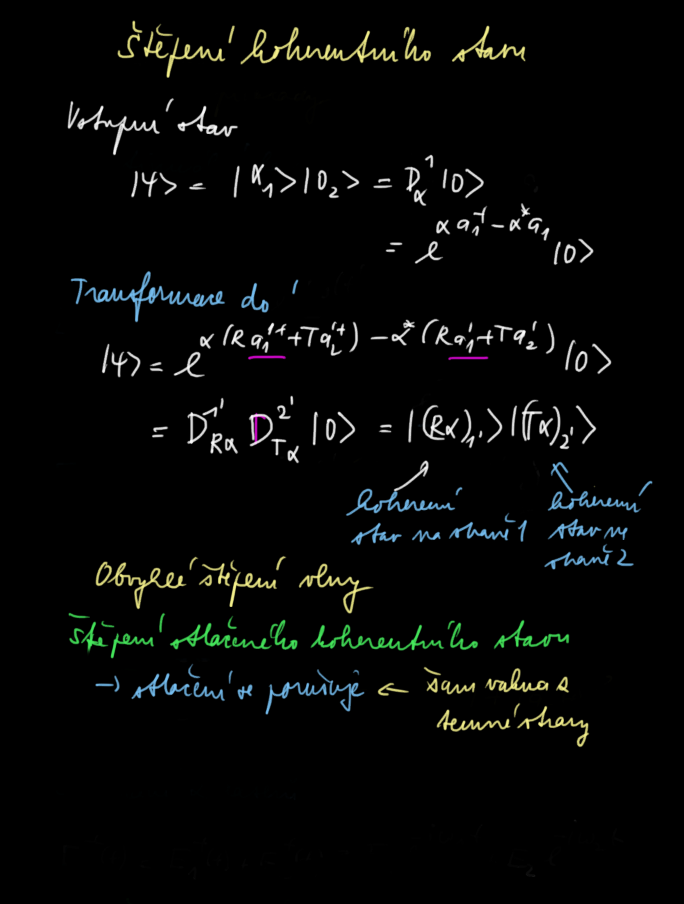 Štěpení koherentního stavu
Vstupní stav
|ψ> = |α₁>|0₂> = D¹_α |0>
= e^{α a₁⁺ − α* a₁} |0>
Transformace do '
|ψ> = e^{α (R a₁'⁺ + T a₂'⁺) − α* (R a₁' + T a₂')} |0>
= D^{1'}_{Rα} D^{2'}_{Tα} |0> = |(Rα)₁'>|(Tα)₂'>
koherení stav na straně 1
koherení stav na straně 2
Obvyklé štěpení vlny
Štěpení stlačeného koherentního stavu
→ stlačení se porušuje ← šum vakua z
temné strany